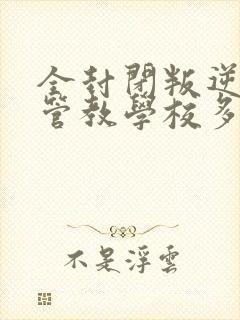 全封閉叛逆
管教學校多
不是浮雲